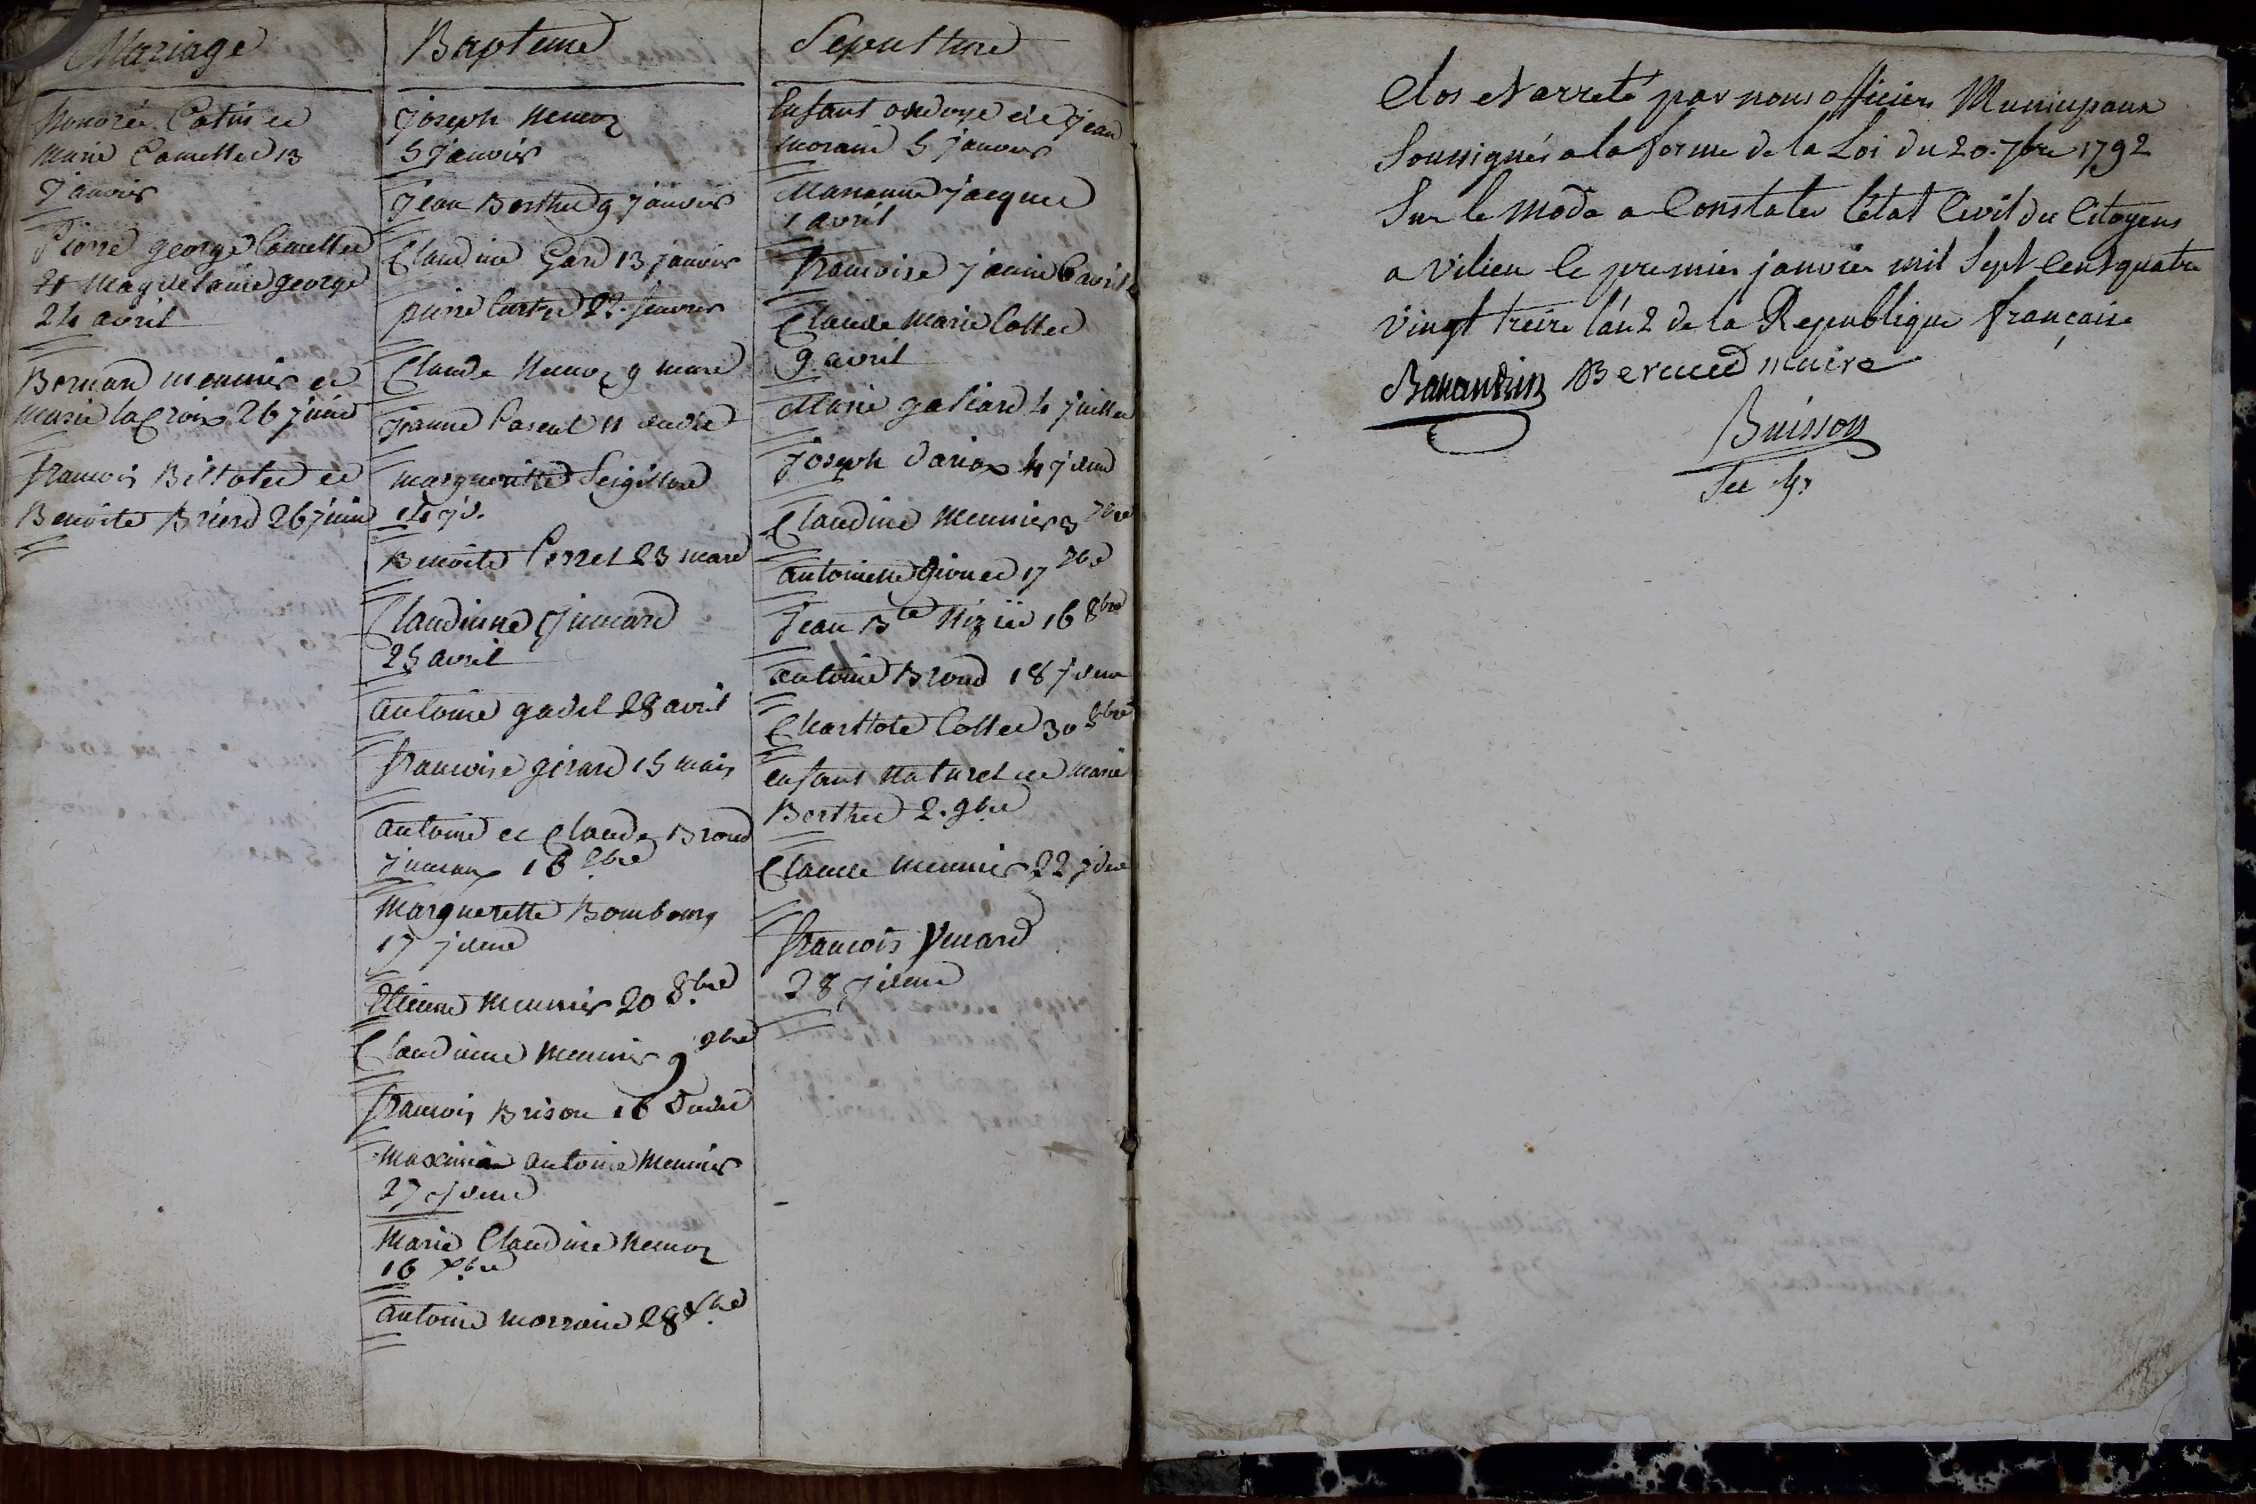 Mariage
honoré Catin et
Marie Camelle 13
janvier
Pierre george Camelle
et Magdelaine george
24 avril
Bernard meunier et
Marie lacroix 26 juin
francois Billotet et
Benoite 26 juin
Bapteme
joseph Nemoz
5 janvier
jean Berthet 9 janvier
Claudine Gard 13 janvier
pierre Curtet 22 fevrier
Claude Nemoz 9 mars
jeanne Parent 11 dudit
margueritte
14 jd.
Benoite Perret 23 mars
Claudinne
25 avril
antoine gadel 28 avril
francoise girard 15 mais
antoine et Claude Broud
jumeaux 16
Marguerette Bombourg
17 jdem
Etienne Meunier 20 8.bre
Claudinne Meunier 9 9bre
francois Brison 16 dudit
Maximin antoine Meunier
27 jdem
Marie Claudine Nemoz
16 Xbre
antoine morraine 28 Xbre
Sepulture
Enfant ondoyé de jean
moraine 5 janvier
Marianne jacquet
1 avril
francoise janin 6 avril
Claude Marie Collet
9 avril
Marie galiard 4 juillet
joseph 4 jdem
Claudine Meunier 3 7bre
antoinette 17 7bre
jean Bte Nizier 16 8bre
antoine Broud 18 jdem
Charllote Collet 30 8bre
enfant Naturel de Marie
Berthet 2. 9bre
Claude Meunier 22 jdem
francois
28 jdem
Clos et arreté par nous officiers Municipaux
Soussignés a la forme de la Loi du 20. 7bre 1792
Sur le mode a Constater l'état Civil des Citoyens
a Vilieu le premier janvier mil Sept Cent quatre
vingt treize l'an 2 de la Republique française
maire
Buisson
Sec gr